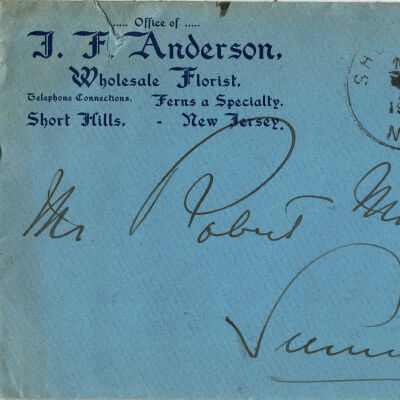 ..... Office of .....
J. F. Anderson,
Wholesale Florist.
Telephone Connections. Ferns a Specialty.
Short Hills, - New Jersey.
SH
19
N
Mr Robert